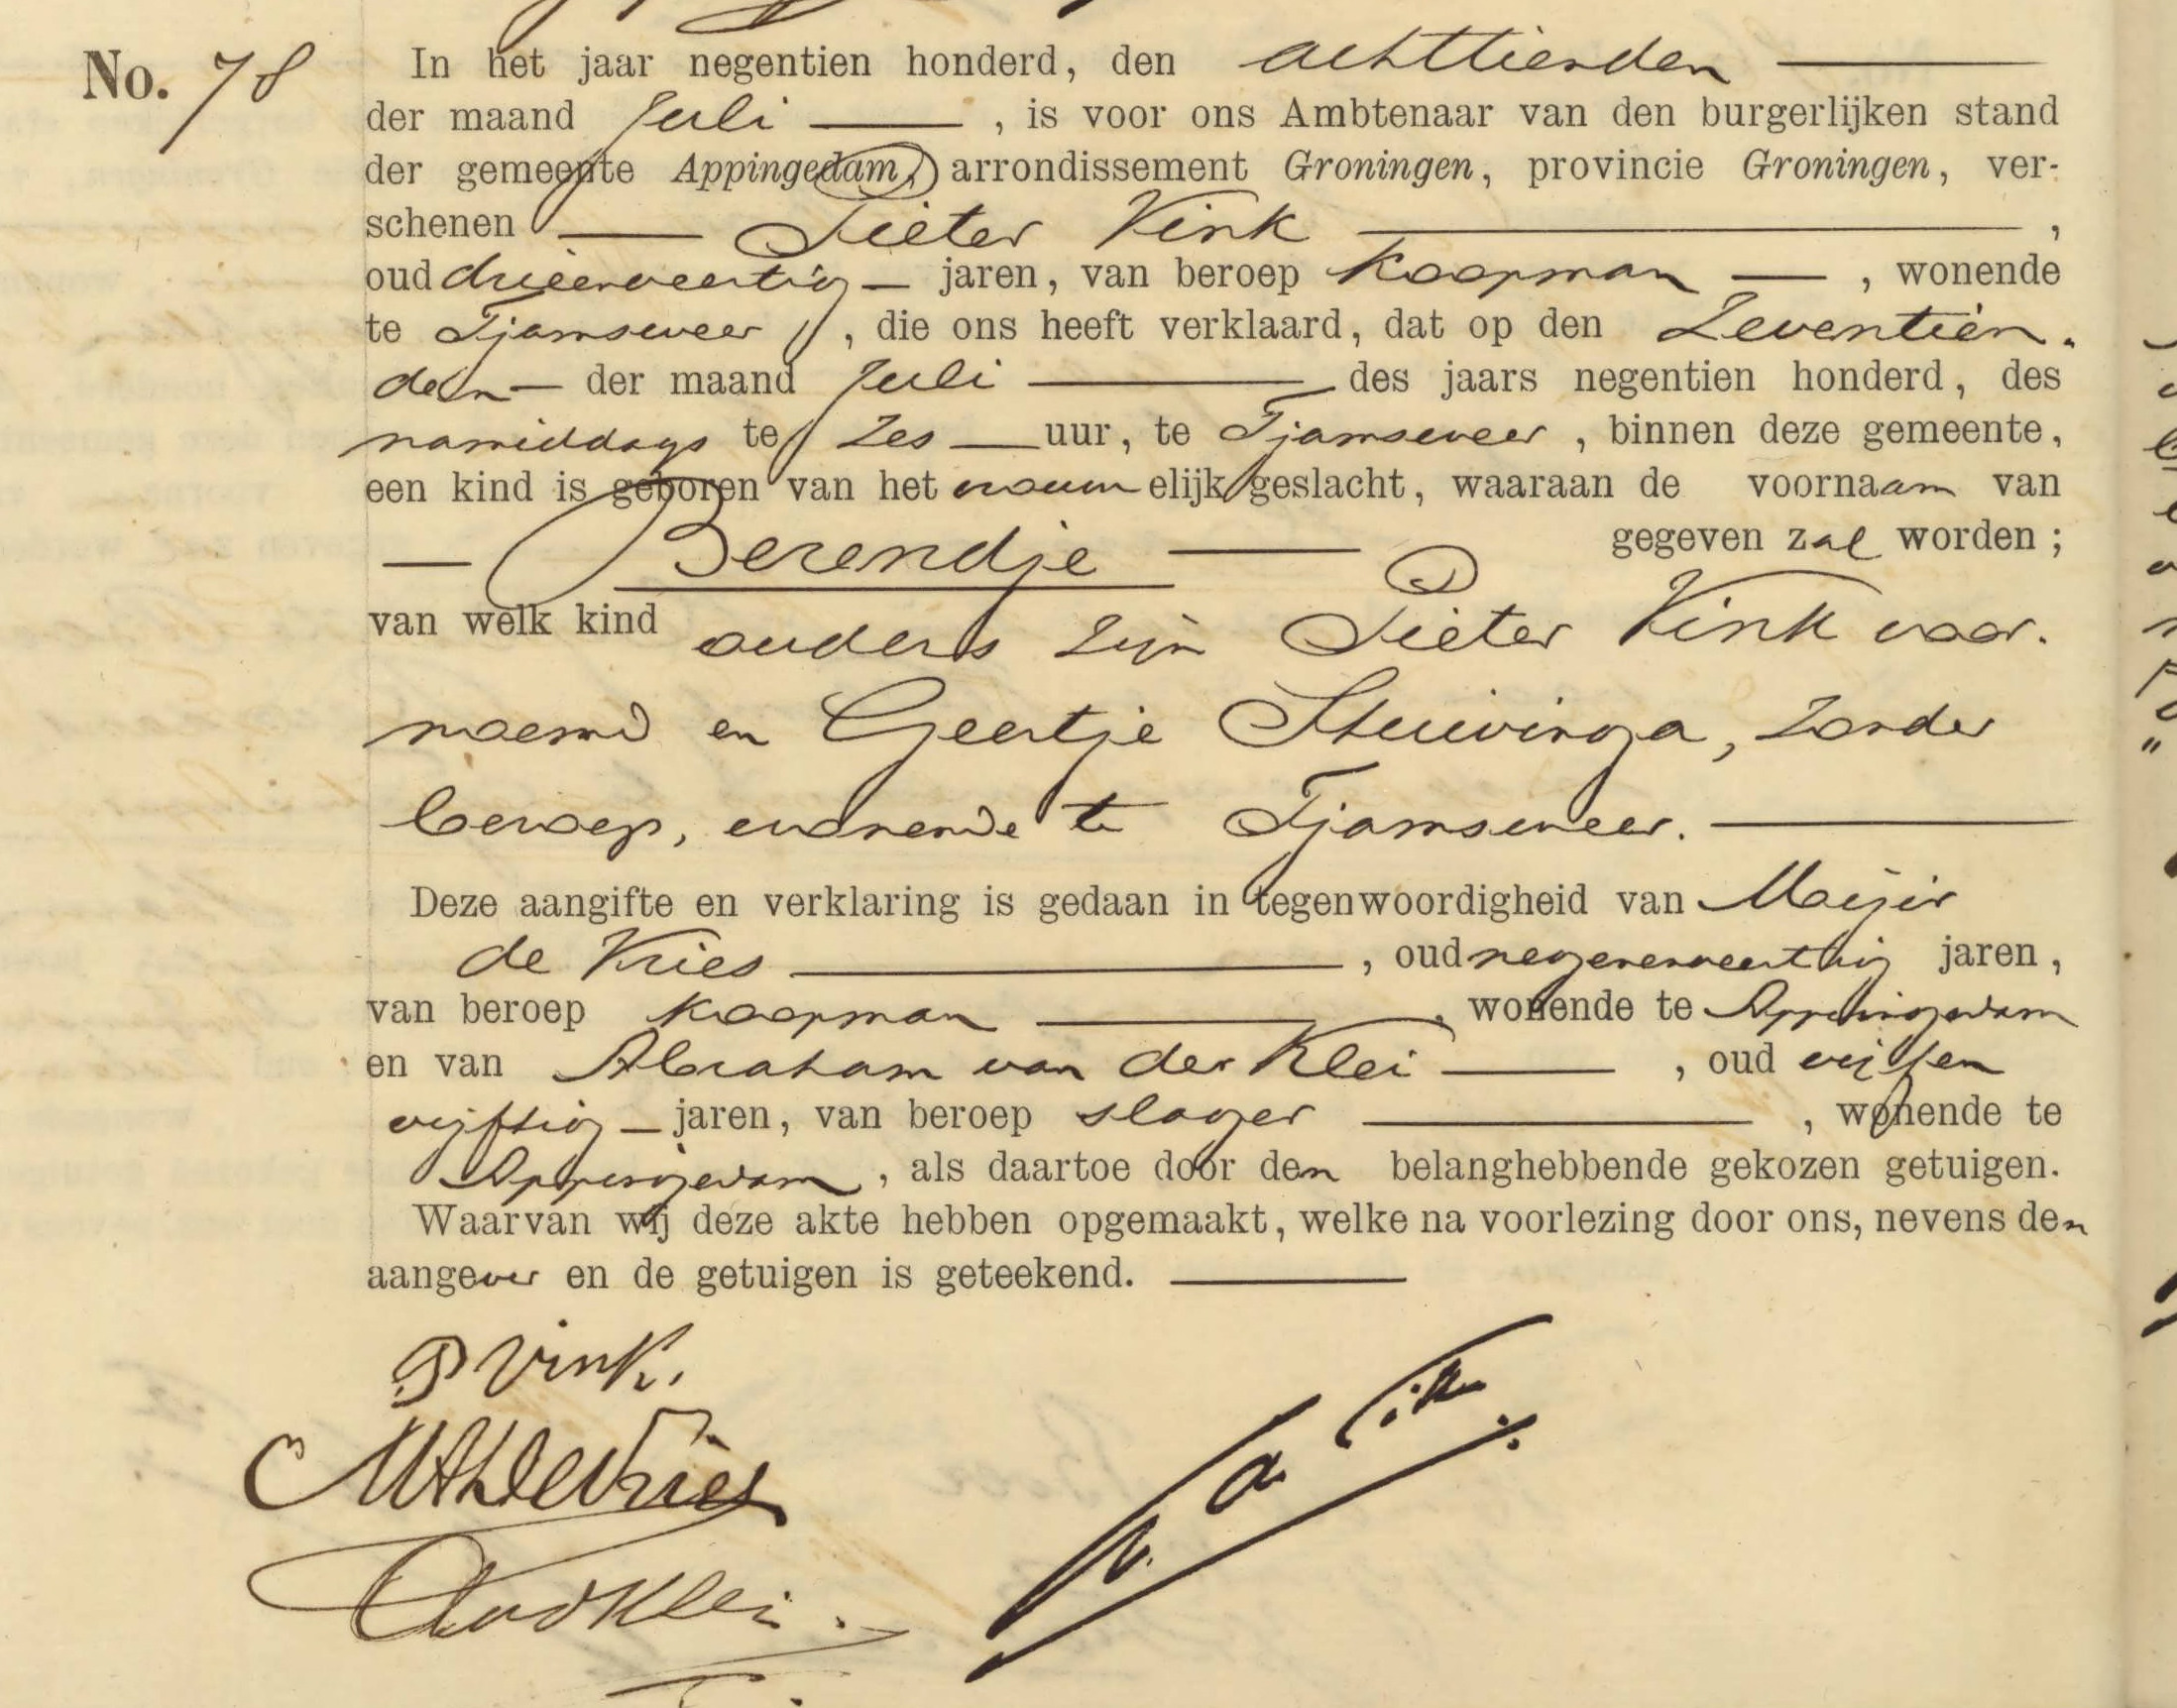 No. 78
In het jaar negentien honderd, den achttienden
der maand Juli, is voor ons Ambtenaar van den burgerlijken stand
der gemeente Appingedam, arrondissement Groningen, provincie Groningen, ver-
schenen Pieter Vink,
oud drieenveertig jaren, van beroep koopman, wonende
te Tjamsweer, die ons heeft verklaard, dat op den Zeventien-
den der maand Juli des jaars negentien honderd, des
namiddags te zes uur, te Tjamsweer, binnen deze gemeente,
een kind is geboren van het vrouwelijk geslacht, waaraan de voornaam van
Berendje gegeven zal worden;
van welk kind ouders zijn Pieter Vink voor-
noemd en Geertje Stuivinga, zonder
beroep, wonende te Tjamsweer.
Deze aangifte en verklaring is gedaan in tegenwoordigheid van Meijer
de Vries, oud negenenveertig jaren,
van beroep koopman, wonende te Appingedam
en van Abraham van der Klei, oud vijfen
vijftig jaren, van beroep slager, wonende te
Appingedam, als daartoe door den belanghebbende gekozen getuigen.
Waarvan wij deze akte hebben opgemaakt, welke na voorlezing door ons, nevens den
aangever en de getuigen is geteekend.
P Vink.
de Vries
AvdKlei